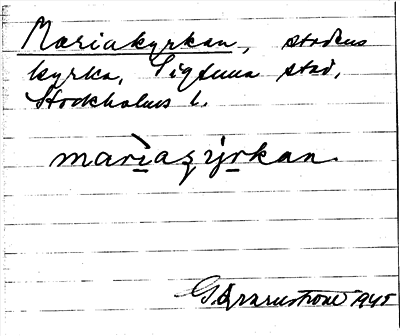 Mariakyrkan, stadens
kyrka, Sigtuna stad,
Stockholms l.
mariaçyrkan.
1945